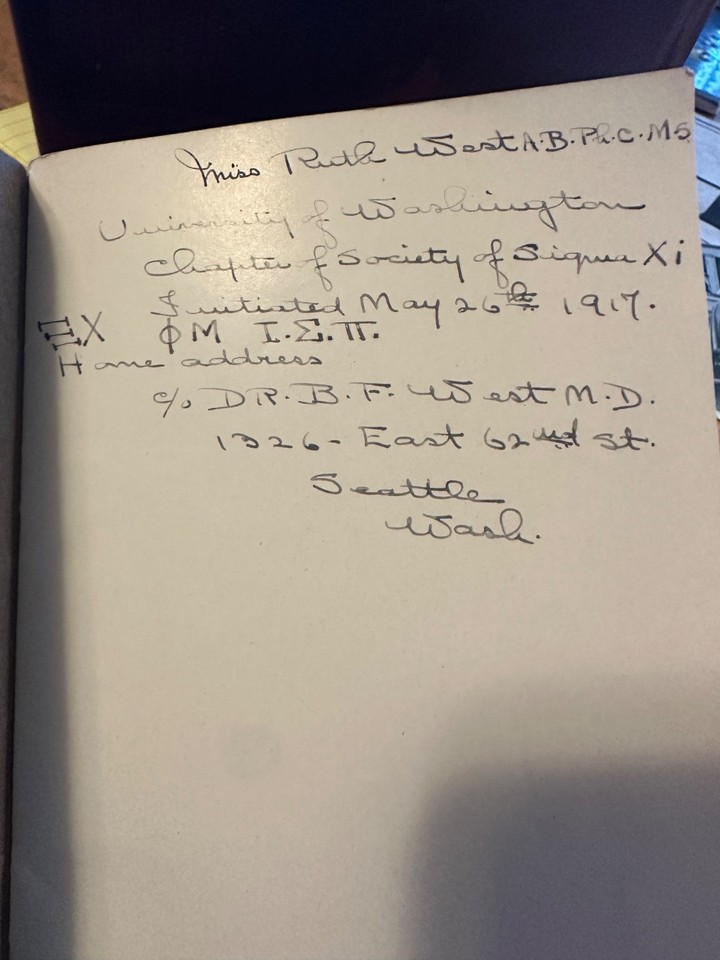 Miss Ruth West A.B. Ph.C. MS
University of Washington
Chapter of Society of Sigma Xi
Initiated May 26th 1917.
ΞX ΦM I.Σ.Π.
Home address
c/o DR. B. F. West M.D.
1326- East 62nd St.
Seattle
Wash.